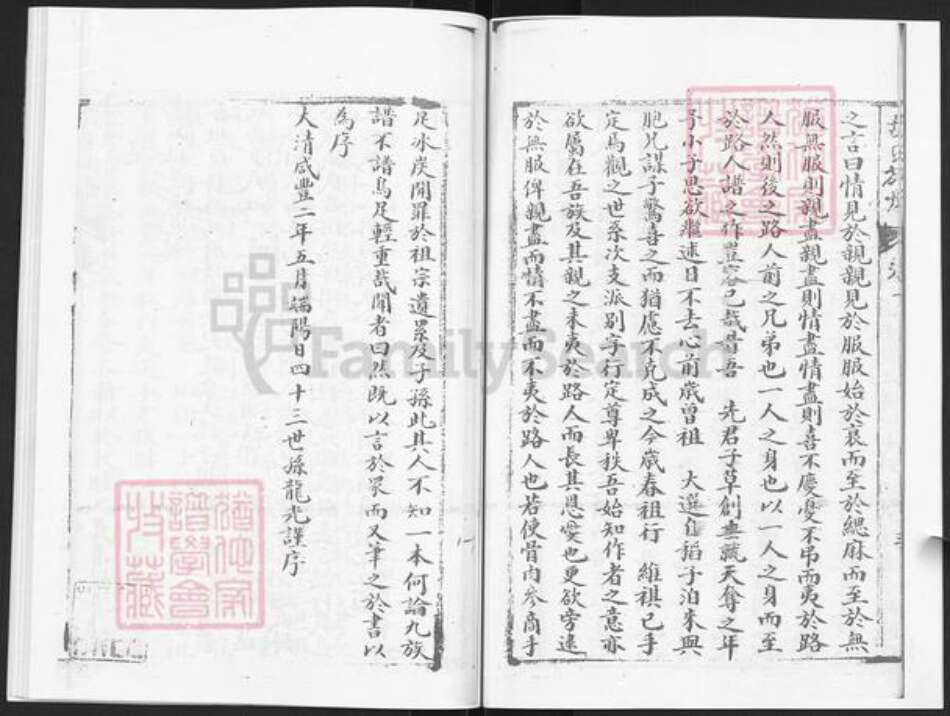 之言曰情見於親親見於服服始於衰而至於緦麻而至於無
服無服則親盡親盡則情盡情盡則喜不慶憂不吊而夷於路
人然則後之路人前之兄弟也一人之身也以一人之身而至
於路人譜之作豈容已哉昔吾 先君子草創無藏天奪之年
予小子思欲繼述日不去心前歲曾祖 大選自稻子泊來與
胞兄謀予驚喜之而猶慮不克成之今歲春祖行 維祺已手
定焉觀之世系次支派別字行定尊卑秩吾始知作者之意亦
欲屬在吾族及其親之未夷於路人而長其恩愛也更欲旁遠
於無服俾親盡而情不盡而不夷於路人也若使骨肉參商手
足冰炭開罪於祖宗遺累及子孫此其人不知一本何論九族
譜不譜烏足輕重哉聞者曰然既以言於眾而又筆之於書以
為序
大清咸豐二年五月端陽日四十三世孫龍光謹序
譜學會
收藏
FamilySearch